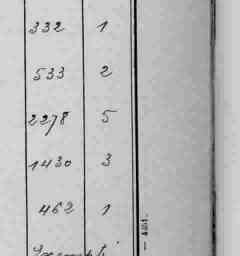 332 1
533 2
2278 5
1430 3
462 1